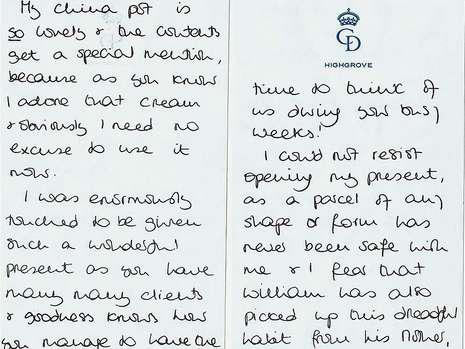 My china pot is
so lovely & the contents
get a special mention,
because as you know
I adore that cream
& obviously I need no
excuse to use it
now.
I was enormously
touched to be given
such a wonderful
present as you have
many many clients
& goodness knows how
you manage to have the
CD
HIGHGROVE
time to think of
us during your busy
weeks!
I could not resist
opening my present,
as a parcel of any
shape or form has
never been safe with
me & I fear that
William has also
picked up this dreadful
habit from his Mother,